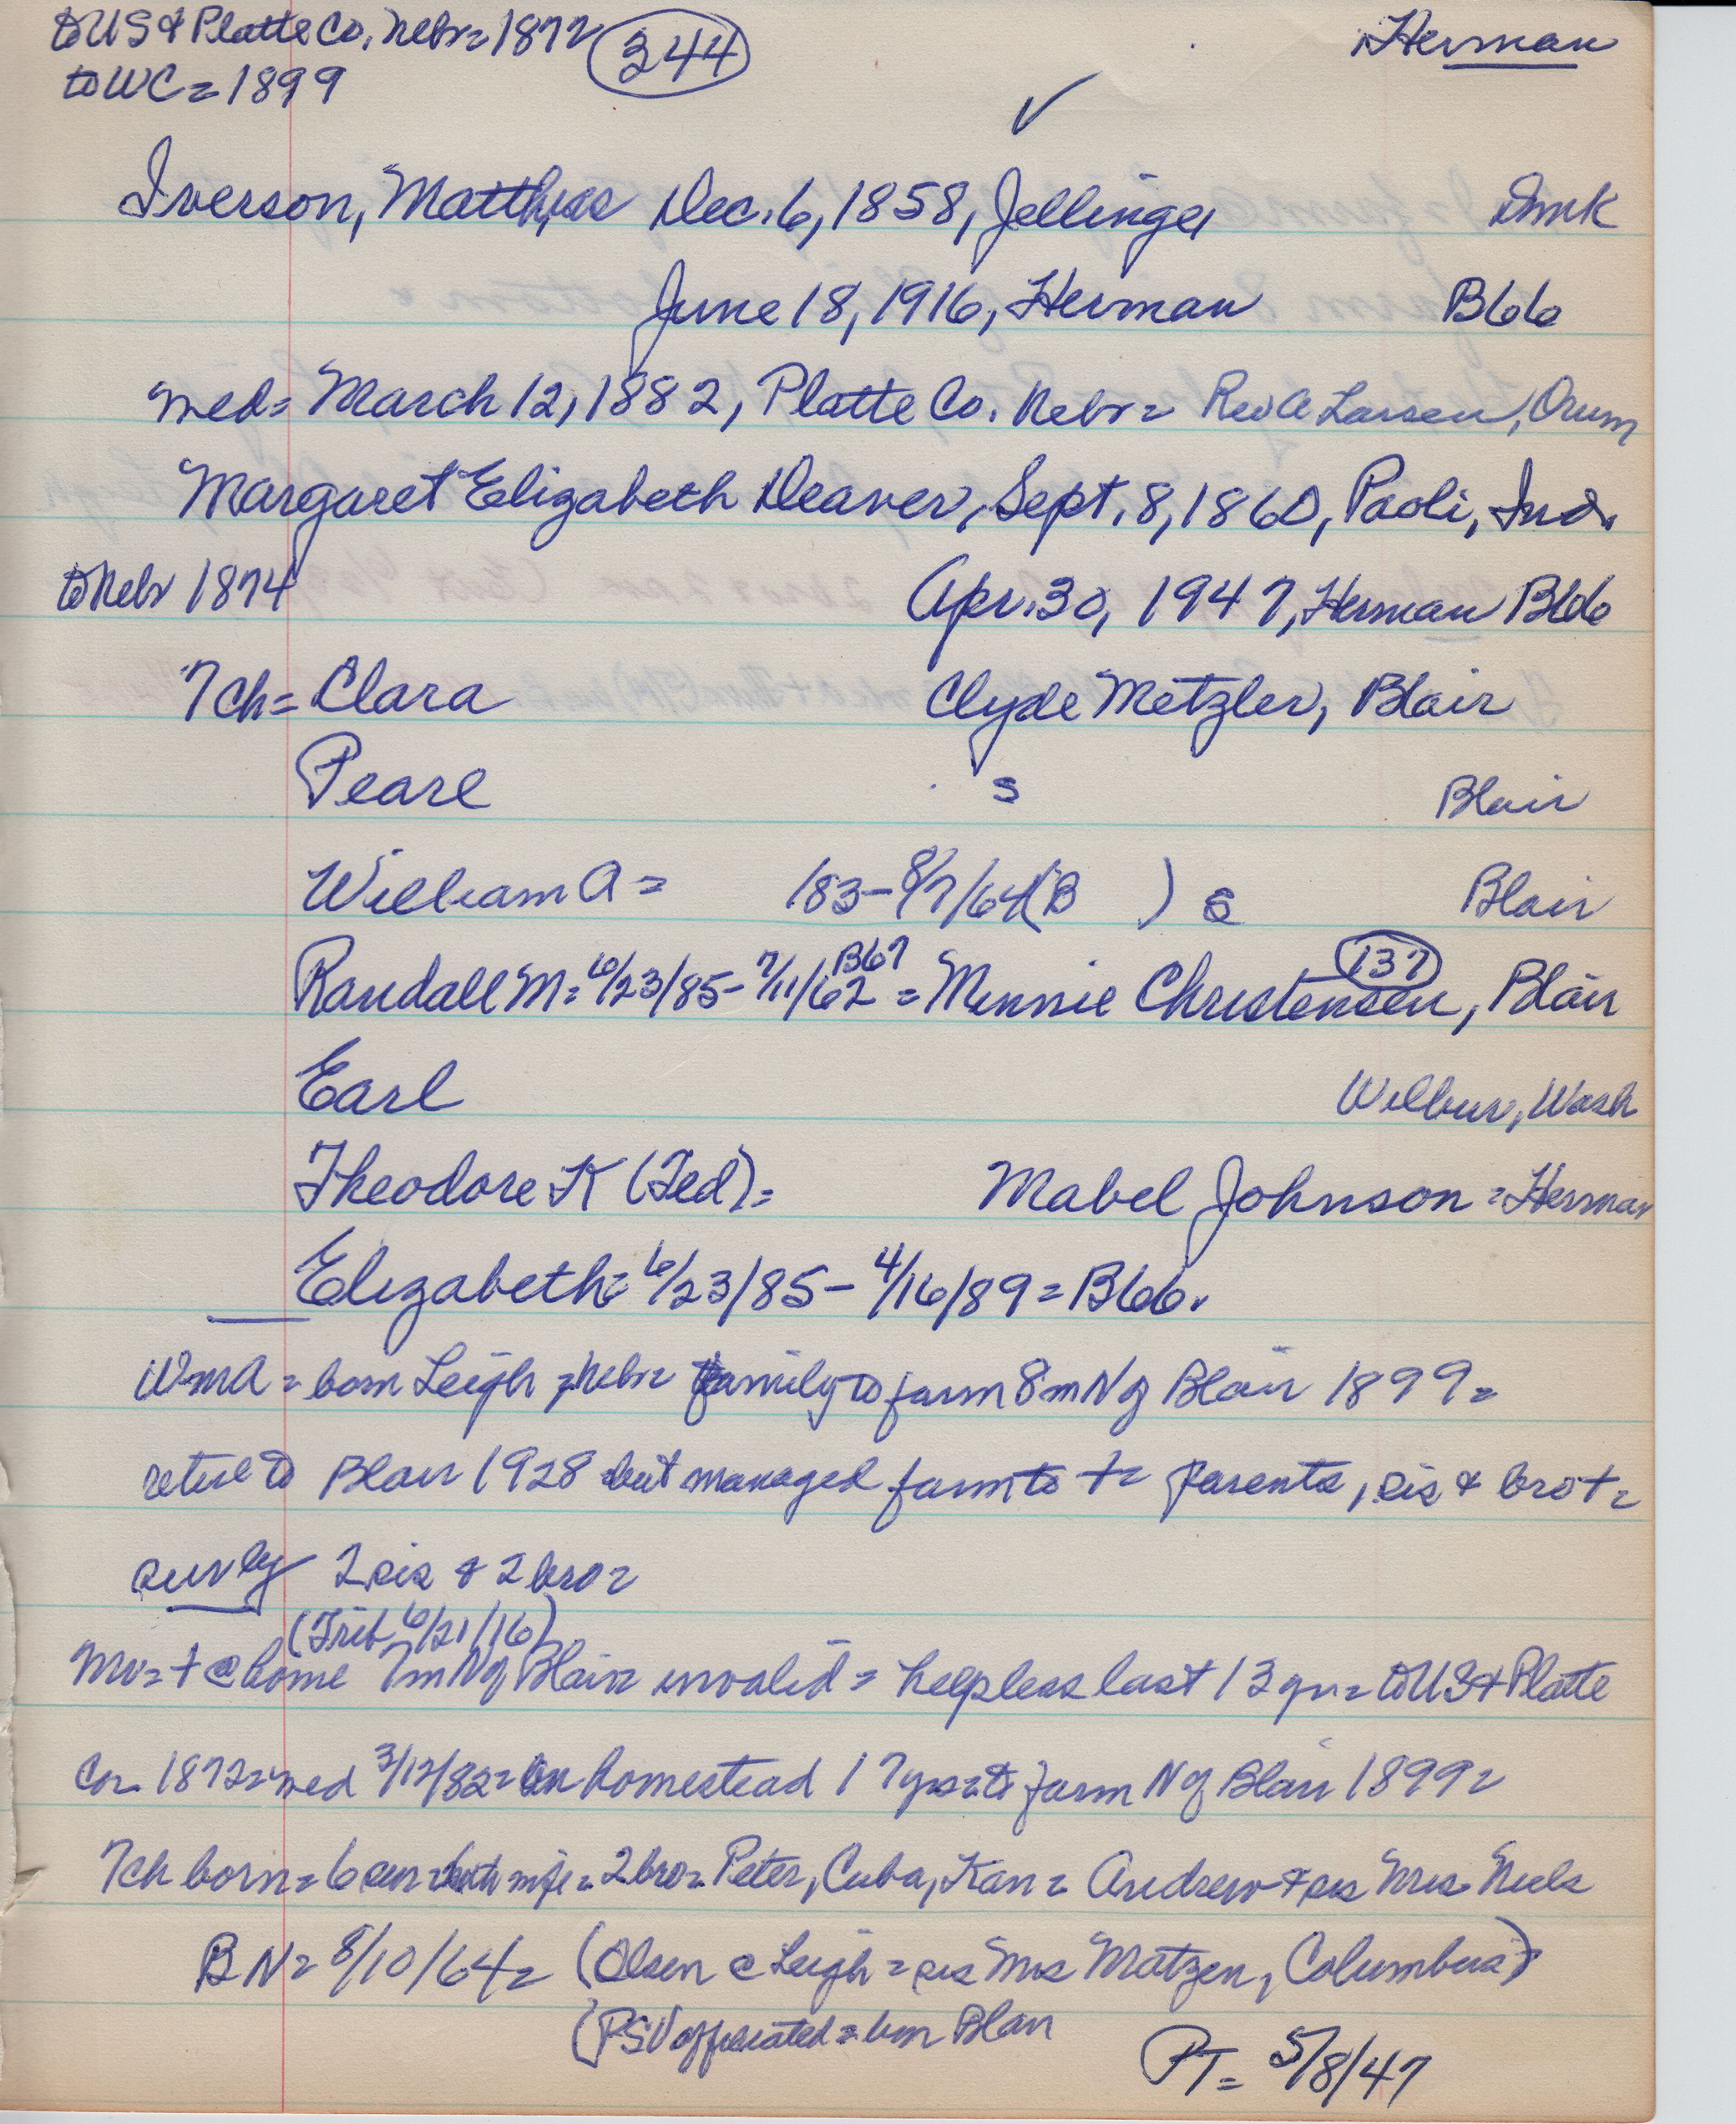 to US & Platte Co. Nebr = 1872 (344) Herman
to WC = 1899
Iverson, Matthias Dec. 6, 1858, Jellinge, Dmk
June 18, 1916, Herman B66
med = March 12, 1882, Platte Co. Nebr = Rev A Larsen, Orum
Margaret Elizabeth Deaver, Sept. 8, 1860, Paoli, Ind.
to Nebr 1874 Apr. 30, 1947, Herman B66
7 ch = Clara Clyde Metzler, Blair
Pearl s Blair
William A = 183 - 8/7/64 (B ) s Blair
B67 (137)
Randall M = 6/23/85 - 7/11/62 = Minnie Christensen, Blair
Earl Wilbur, Wash
Theodore K (Ted) = Mabel Johnson = Herman
Elizabeth = 6/23/85 - 4/16/89 = B66.
WmA = born Leigh, Nebr = family to farm 8 m N of Blair 1899 =
retire to Blair 1928 but managed farm to + = parents, sis & bro + =
surv by 2 sis & 2 bro =
(Trib 6/21/16)
Mv = + @ home 7 m N of Blair = invalid = helpless last 13 yr = to US & Platte
Co = 1872 = med 3/12/82 = on homestead 17 yrs = to farm N of Blair 1899 =
7 ch born = 6 surv with wife = 2 bro = Peter, Cuba, Kan = Andrew & sis Mrs Neels
BN = 8/10/64 = (Olsen @ Leigh = sis Mrs Matzen, Columbus)
(PSV officiated = Blair
PT = 5/8/47